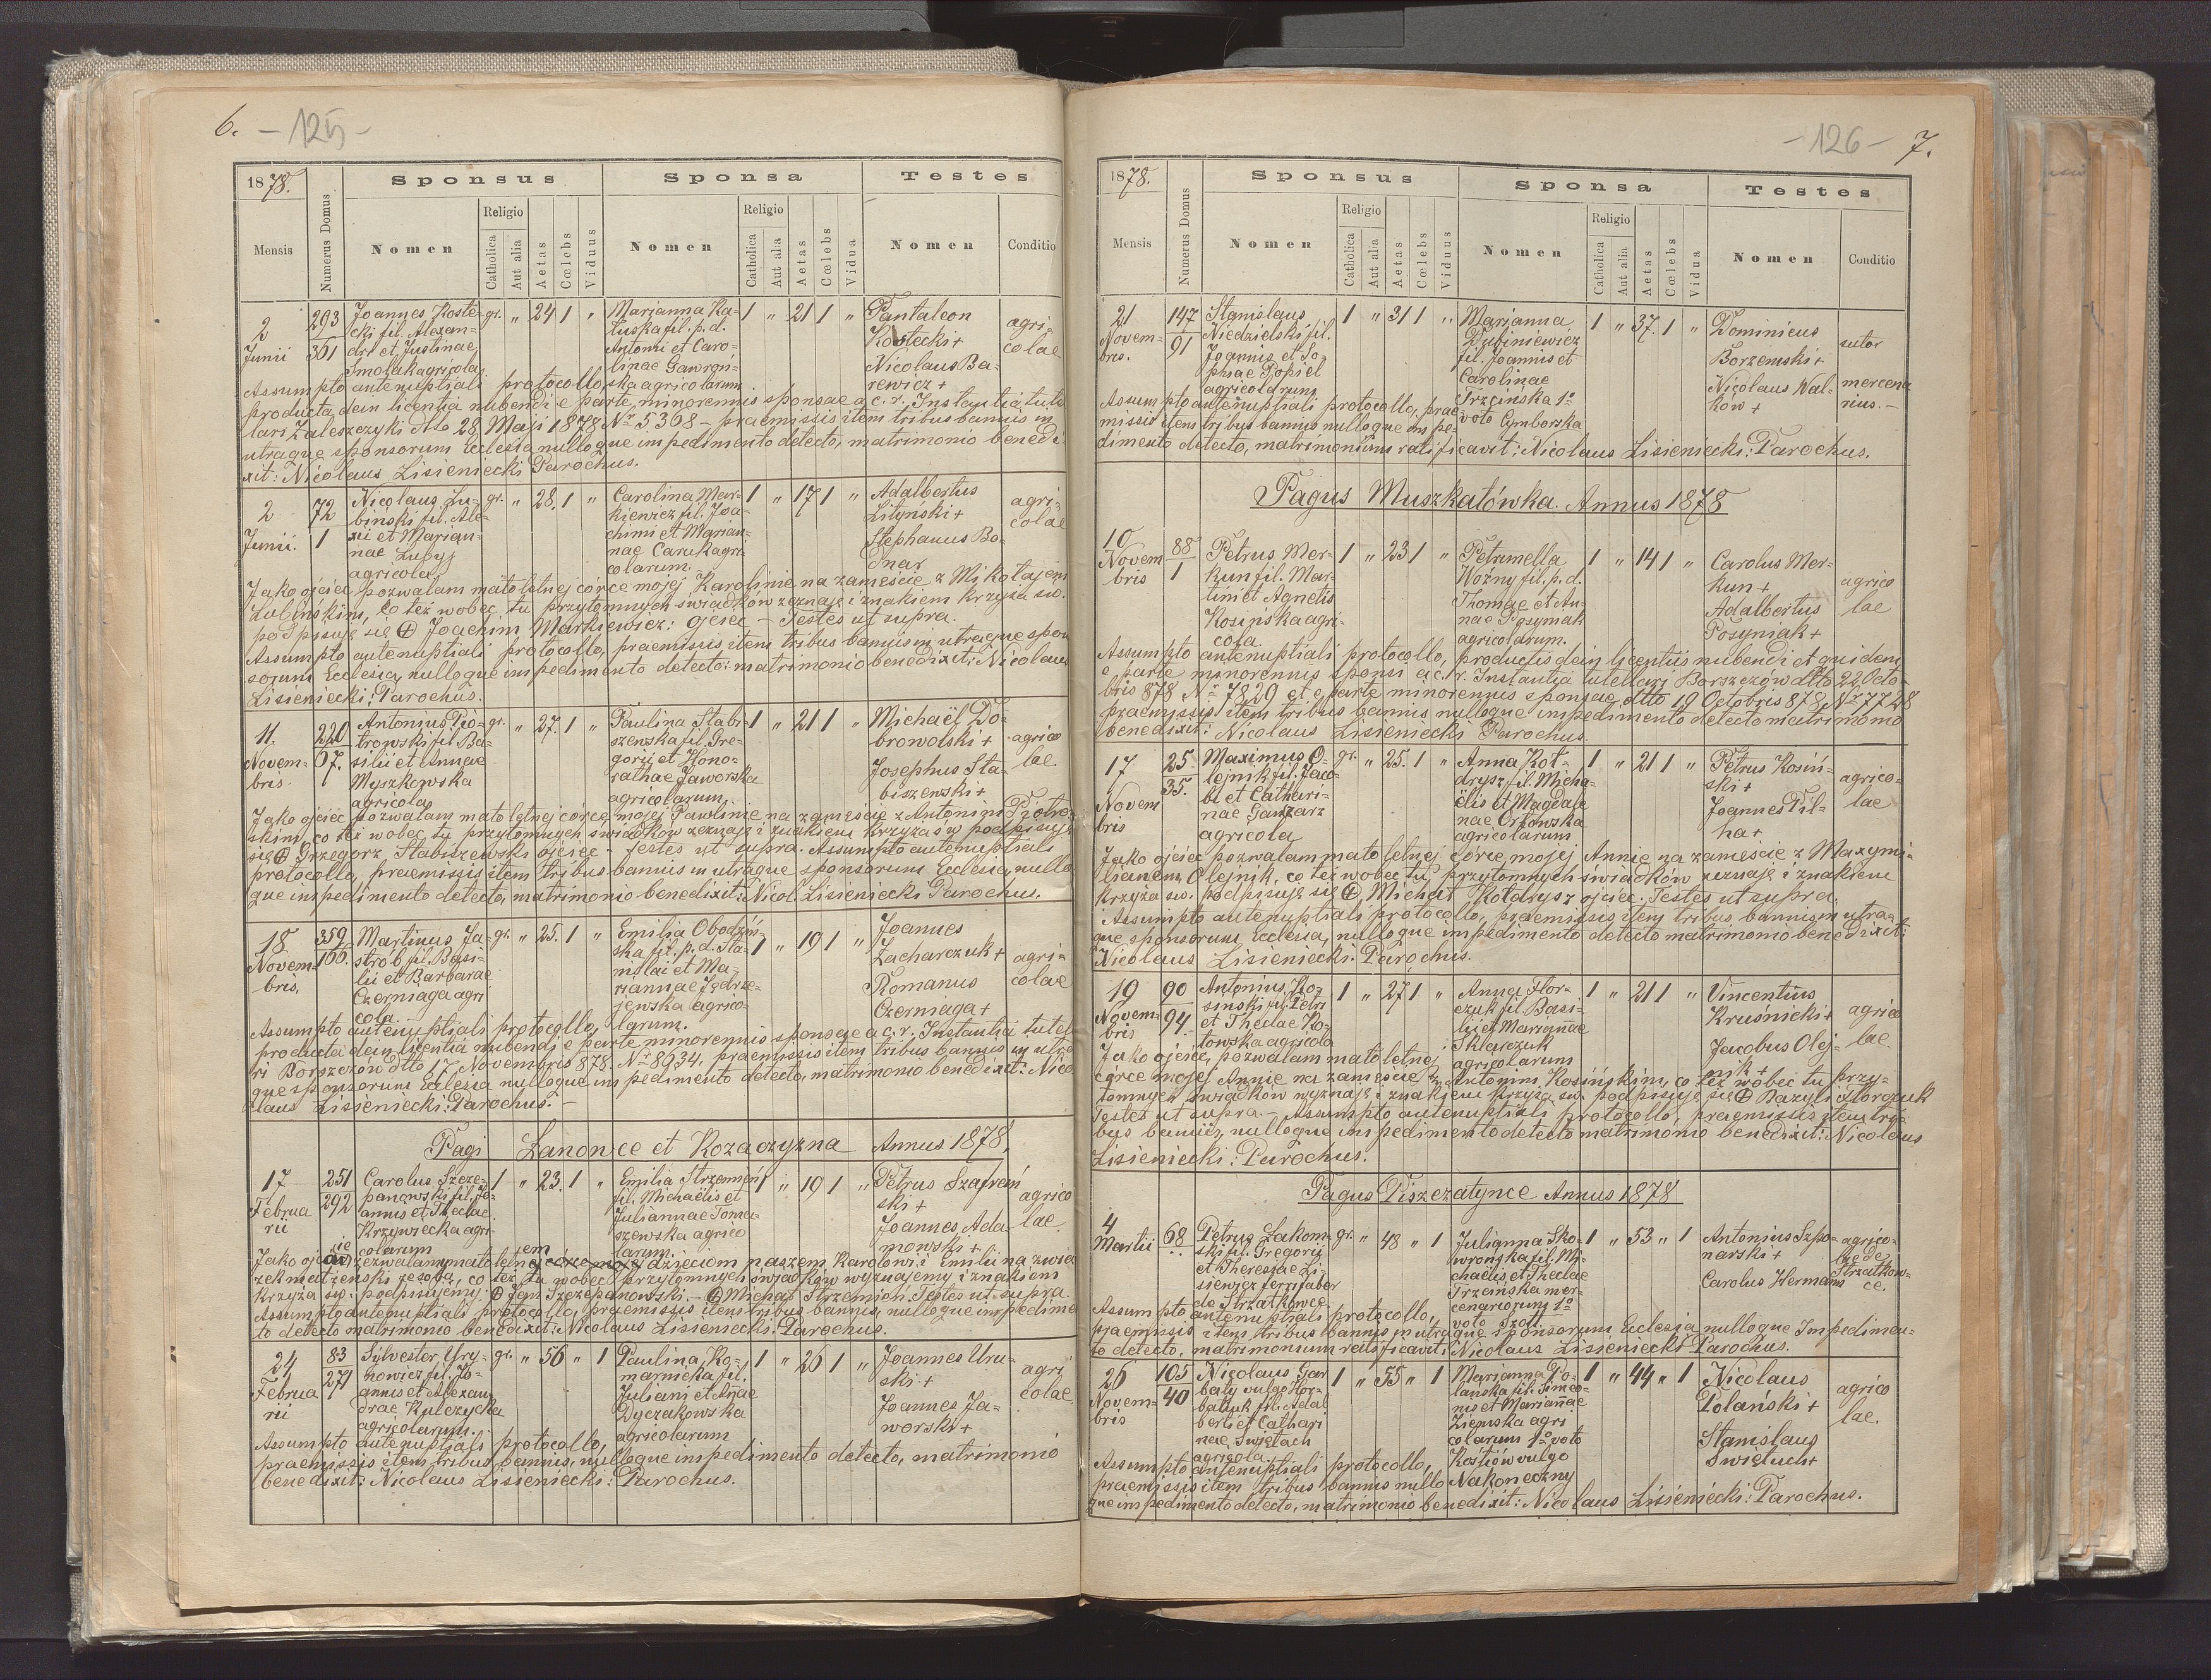 6. - 125 -
1878.
Sponsus
Sponsa
Testes
Mensis
Numerus Domus
Nomen
Religio
Catholica
Aut alia
Aetas
Cœlebs
Viduus
Nomen
Religio
Catholica
Aut alia
Aetas
Cœlebs
Vidua
Nomen
Conditio
2
Junii
293
361
Joannes Koste-
cki fil. Alexan-
dri et Justinae
Smolak agricola
gr. " 24 1 "
Marianna Ka-
fil. p. d.
Antonii et Caro-
linae Gawroń-
ska agricolarum
1 " 21 1 "
Pantaleon
Kostecki +
Nicolaus Ba-
rewicz +
agri-
colae
Assumpto antenuptiali protocollo,
producta dein licentia nubendi e parte minorennis sponsae a c. r. Instantia tute
lari Zaleszczyki dtto 28 Maji 1878 Nr 5368 - praemissis item tribus bannis in
utraque sponsorum Ecclesia nulloque impedimento detecto, matrimonio benedi-
xit: Nicolaus Lisieniecki Parochus.
2
Junii.
72
1
Nicolaus Lu-
binski fil. Ale-
xii et Marian-
nae Lubyj
agricola
gr. " 28. 1 "
Carolina Mar-
kiewicz fil. Joa-
chimi et Marian-
nae Caruk agri
colarum.
1 " 17 1 "
Adalbertus
Litynski +
Stephanus Bo-
dnar
agri-
colae
Jako ojciec pozwalam małoletnej córce mojej Karolinie na zamęście z Mikołajem
Lubinskim, co też wobec tu przytomnych świadków zeznaję i znakiem krzyża św.
podpisuję się + Joachim Markiewicz: ojciec - Testes ut supra.
Assumpto antenuptiali protocollo, praemissis item tribus bannis in utraque spon
sorum Ecclesia, nulloque impedimento detecto: matrimonio benedixit: Nicolaus
Lisieniecki: Parochus.
11.
Novem-
bris.
220
67.
Antonius Pio-
trowski fil Ba-
silii et Annae
Myszkowska
agricola
gr. " 27. 1 "
Paulina Stabi-
szewska fil. Gre-
gorii et Hono-
rathae Jaworska
agricolarum.
1 " 21 1 "
Michaël Do-
browolski +
Josephus Sta-
biszewski +
agrico
lae
Jako ojciec pozwalam małoletnej córce mojej Pawlinie na zamęście z Antonim Piotrow
skim, co też wobec tu przytomnych świadków zeznaję i znakiem krzyża św podpisuję
się + Grzegorz Stabiszewski ojciec - Testes ut supra. Assumpto antenuptiali
protocollo, praemissis item tribus bannis in utraque sponsorum Ecclesia, nullo
que impedimento detecto, matrimonio benedixit: Nicol. Lisieniecki Parochus.
18
Novem-
bris.
359
166.
Martinus Ja-
strób fil. Basi-
lii et Barbarae
Czerniaga agri
cola.
gr. " 25. 1 "
Emilia Obodzin-
ska fil. p. d. Sta-
nislai et Ma-
riannae Jędrze-
jewska agrico-
larum.
1 " 19 1 "
Joannes
Zacharczuk +
Romanus
Czerniaga +
agri-
colae
Assumpto antenuptiali protocollo,
producta dein licentia nubendi e parte minorennis sponsae a c. r. Instantia tutela
ri Borszczów dtto 17 Novembris 878. Nr 8634, praemissis item tribus bannis in utra
que sponsorum Ecclesia nulloque impedimento detecto, matrimonio benedixit: Nico
laus Lisieniecki: Parochus. -
Pagi Łanowce et Kozaczyzna Annus 1878.
17
Februa
rii
251
292
Carolus Szcze-
panowski fil. Jo-
annis et Theclae
Krzywiecka agri-
colarum
1 " 23. 1 "
Emilia Strzemień
fil. Michaëlis et
Juliannae Toma-
szewska agrico
larum.
1 " 19 1 "
Petrus Szafrań
ski +
Joannes Ada
mowski +
agrico
lae
dzieciom naszem Karolowi i Emilii na zwią
zek małżeński ze sobą, co też tu wobec przytomnych świadków wyznajemy i znakiem
krzyża św. podpisujemy: + Jan Szczepanowski. - + Michał Strzemień. Testes ut supra.
Assumpto antenuptiali protocollo, praemissis item tribus bannis, nulloque impedimen
to detecto matrimonio benedixit: Nicolaus Lisieniecki: Parochus.
24
Februa
rii
83
271
Sylvester Ury-
nowicz fil. Jo-
annis et Alexan
drae Kulczycka
agricolarum.
gr. " 56 " 1
Paulina Ko-
marnicka fil.
Juliani et Annae
Dyczakowska
agricolarum
1 " 26 1 "
Joannes Uru-
ski +
Joannes Ja-
worski +
agri
colae
Assumpto antenuptiali protocollo,
praemissis item tribus bannis, nulloque impedimento detecto, matrimonio
benedixit: Nicolaus Lisieniecki: Parochus.
- 126 - 7.
1878.
Sponsus
Sponsa
Testes
Mensis
Numerus Domus
Nomen
Religio
Catholica
Aut alia
Aetas
Cœlebs
Viduus
Nomen
Religio
Catholica
Aut alia
Aetas
Cœlebs
Vidua
Nomen
Conditio
21
Novem-
bris.
147
91
Stanislaus
Niedzielski fil.
Joannis et So-
phiae Popiel
agricolarum
1 " 31 1 "
Marianna
Dubiniewicz
fil. Joannis et
Carolinae
Trzcińska 1o
voto Cymborska
1 " 37. 1 "
Dominicus
Borzemski +
Nicolaus Wal-
ków +
sutor
mercena
rius. -
Assumpto antenuptiali protocollo, prae-
missis item tribus bannis nulloque impe-
dimento detecto, matrimonium ratificavit: Nicolaus Lisieniecki: Parochus.
Pagus Muszkatówka. Annus 1878
10
Novem
bris
88
1
Petrus Mer-
kun fil. Mar-
tini et Agnetis
Kosińska agri-
cola
1 " 23 1 "
Petrunella
Woźny fil. p. d.
Thomae et An-
nae Posyniak
agricolarum.
1 " 14 1 "
Carolus Mer-
kun +
Adalbertus
Posyniak +
agrico
lae
Assumpto antenuptiali protocollo, productis dein licentiis nubendi et quidem
e parte minorennis sponsi a c. r. Instantia tutelari Borszczów dtto 22 Octo-
bris 878 No 7829 et e parte minorennis sponsae dtto 19 Octobris 878 Nr 7728
praemissis item tribus bannis nulloque impedimento detecto matrimonio
benedixit: Nicolaus Lisieniecki Parochus.
17
Novem
bris
25
35.
Maximus O-
lejnik fil. Jaco-
bi et Cathari-
nae Ganczarz
agricola
gr. " 25. 1 "
Anna Koł-
drysz fil. Micha-
ëlis et Magdale
nae Orłowska
agricolarum
1 " 21 1 "
Petrus Kosiń-
ski +
Joannes Pil-
ha +
agrico-
lae
Jako ojciec pozwalam małoletnej córce mojej Annie na zamęście z Maxymi-
lianem Olejnik, co też wobec tu przytomnych świadków zeznaję i znakiem
krzyża św. podpisuję się + Michał Kołdrysz ojciec. Testes ut supra.
Assumpto antenuptiali protocollo, praemissis item tribus bannis in utra-
que sponsorum Ecclesia, nulloque impedimento detecto matrimonio benedixit:
Nicolaus Lisieniecki: Parochus.
19
Novem-
bris
90
94.
Antonius Ko-
sinski fil. Petri
et Theclae Ko-
towska agricola
1 " 27 1 "
Anna Flor-
czuk fil Basi-
lii et Mariannae
Sklarczuk
agricolarum
1 " 21 1 "
Vincentius
Krusnicki +
Jacobus Olej-
nik +
agrico
lae.
Jako ojciec, pozwalam małoletnej
córce mojej Annie na zamęście z Antonim Kosińskim, co też wobec tu przy-
tomnych świadków wyznaję i znakiem krzyża św. podpisuję się + Bazyli Florczuk
Testes ut supra. - Assumpto antenuptiali protocollo, praemissis item tri-
bus bannis, nulloque impedimento detecto matrimonio benedixit: Nicolaus
Lisieniecki: Parochus.
Pagus Piszczatynce Annus 1878
4
Martii
68
Petrus Zakom-
ski fil. Gregorii
et Theresiae Li-
siewicz ferrifaber
de Strzałkowce
gr. " 48 " 1
Julianna Sko-
wrońska fil. Mi-
chaëlis et Theclae
Trzcinska mer-
cenariorum 1o
voto Szott
1 " 53 " 1
Antonius Szpo-
narski +
Carolus Hermans
agrico-
lae de
Strzałkow-
ce.
Assumpto antenuptiali protocollo,
praemissis item tribus bannis in utraque sponsorum Ecclesia nulloque Impedimen-
to detecto, matrimonium ratificavit: Nicolaus Lisieniecki Parochus.
26
Novem-
bris
105
40
Nicolaus Gar
baty vulgo Hor-
batiuk fil. Adal
berti et Cathari
nae Swiętach
agricola.
1 " 55 " 1
Marianna Po-
lanska fil. Simeo-
nis et Mariannae
Ziemska agri
colarum 1o voto
Kostiów vulgo
Nakoneczny
1 " 44 " 1
Nicolaus
Polański +
Stanislaus
Swięluch +
agrico
lae.
Assumpto antenuptiali protocollo,
praemissis item tribus bannis nullo
que impedimento detecto, matrimonio benedixit: Nicolaus Lisieniecki: Parochus.